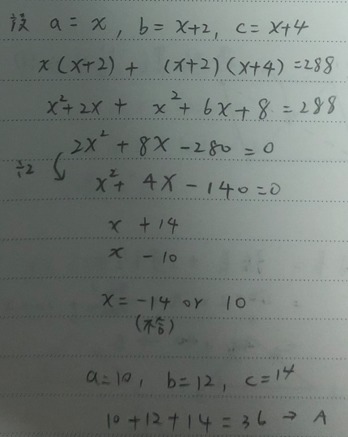 設 a = x , b = x+2, c = x+4
x(x+2) + (x+2)(x+4)=288
x²+2x + x²+6x+8 = 288
2x²+8x-280=0
÷2
x²+4x-140=0
x +14
x -10
x = -14 or 10
(不合)
a=10, b=12, c=14
10+12+14=36 → A